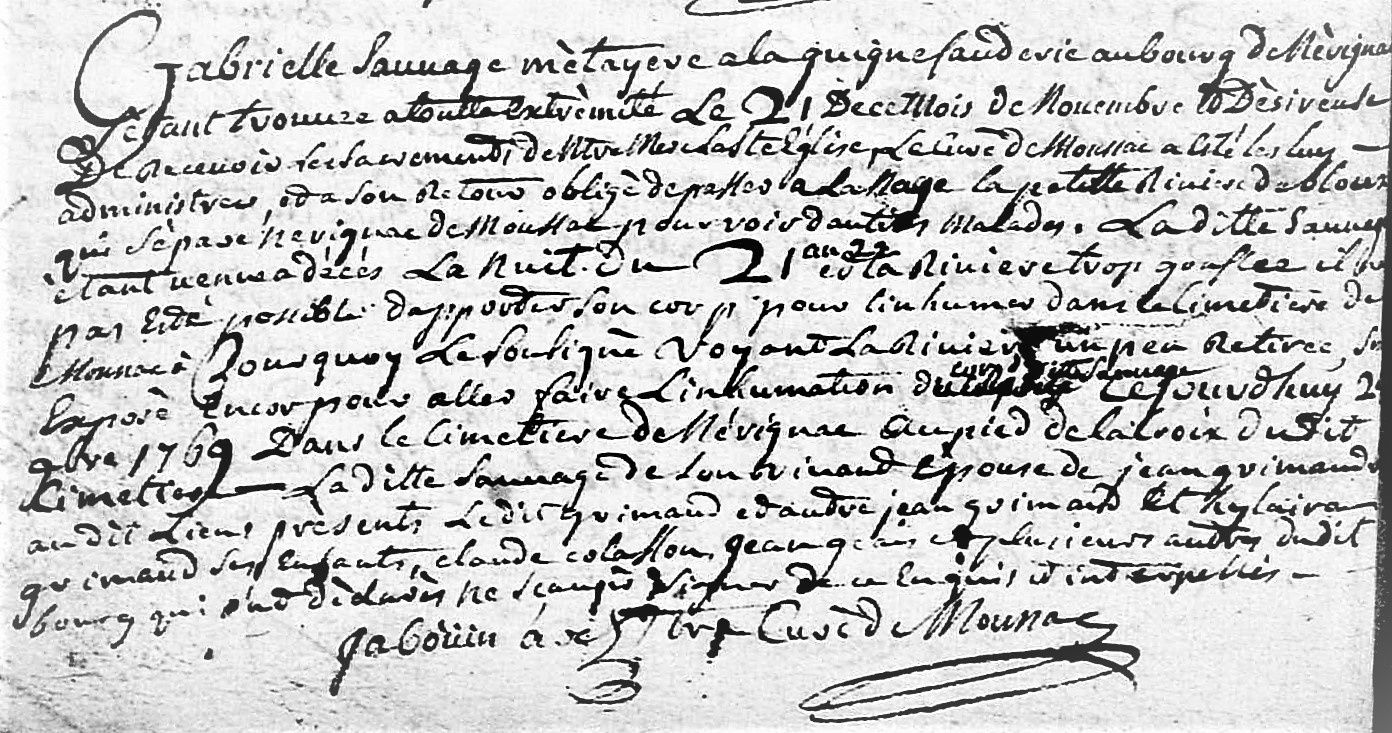 Gabrielle Sauvage mètayere a la guignefauderie au bourg de Nèrignac
Sètant trouvee a toutte Extrèmité Le 21 De ce Mois de Novembre et Dèsireuse
De Recevoir les sacrements de Ntre Mere La Ste Église, Le Curé de Moussac a Esté les luy
administrer, et a son Retour obligè de passer a La Nage la petitte Riviere de blour
qui sèpare Nerignac de Moussac pour voir dautres malades. La ditte Sauvage
ètant venue a dècés La Nuit du 21 au 22 et la Riviere trop gonflee il
pas Esté possible dapporter son corp pour linhumer dans le Cimetiere de
Moussac Pourquoy Le Soussignè Voyant La Riviere un peu Retiree, 
Exposè Encor pour aller faire Linhumation du corps ditte Sauvage Cejourdhuy
9bre 1769 Dans le Cimetiere de Nérignac Au pied de la croix du Dit
Cimettiere La ditte Sauvage de son vivand Épouse de jean grimaud
au dit Lieu, prèsents Ledit grimaud et andrè jean grimaud Et hylaire
grimaud ses Enfants, claude colasson, jean et plusieurs autres dudit
bourg qui ont dèclarès ne Sçavoir Signer de ce Enquis et interpellès
Jaboüin Curè de Moussac